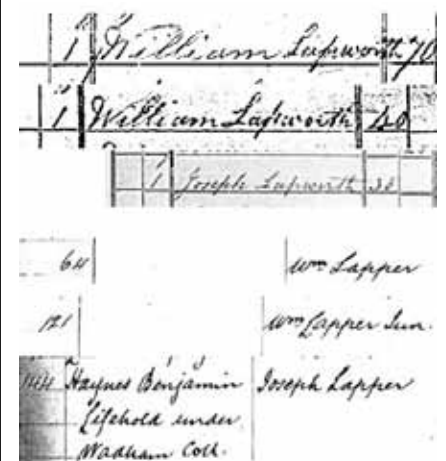 1 William Lapworth 70
1 William Lapworth 40
1 Joseph Lapworth 30
64 Wm Lapper
121 Wm Lapper Jun.
144 Haynes Benjamin Joseph Lapper
Lifehold under
Wadham Coll.